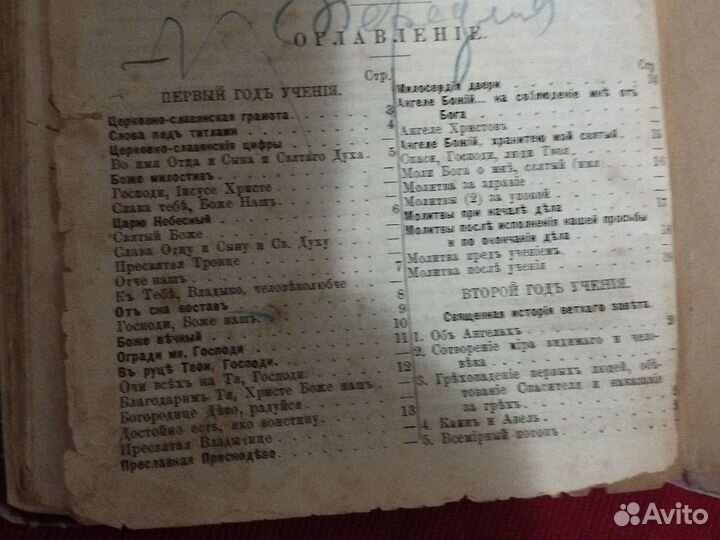 ОГЛАВЛЕНІЕ.
Стр.
ПЕРВЫЙ ГОДЪ УЧЕНІЯ.
Церковно-славянская грамота 3
Слова подъ титлами 4
Церковно-славянскія цифры
Во имя Отца и Сына и Святаго Духа 5
Боже милостивъ
Господи, Іисусе Христе
Слава тебѣ, Боже Нашъ
Царю Небесный 6
Святый Боже
Слава Отцу и Сыну и Св. Духу
Пресвятая Троице
Отче нашъ 7
Къ Тебѣ, Владыко, человѣколюбче
Отъ сна воставъ 8
Господи, Боже нашъ 9
Боже вѣчный 10
Огради мя, Господи 11
Въ руцѣ Твои, Господи
Очи всѣхъ на Тя, Господи 12
Благодаримъ Тя, Христе Боже нашъ
Богородице Дѣво, радуйся
Достойно есть, яко воистину 13
Пресвятая Владычице
Преславная Приснодѣво
Стр.
Милосердія двери 14
Ангеле Божій... на соблюденіе мнѣ отъ
Бога
Ангеле Христовъ
Ангеле Божій, хранителю мой святый 15
Спаси, Господи, люди Твоя
Моли Бога о мнѣ, святый (имя) 16
Молитва за здравіе
Молитвы (2) за упокой
Молитвы при началѣ дѣла 17
Молитвы послѣ исполненія нашей просьбы
и по окончаніи дѣла 18
Молитва предъ ученіемъ
Молитва послѣ ученія
ВТОРОЙ ГОДЪ УЧЕНІЯ.
Священная исторія ветхаго завѣта.
1. Объ Ангелахъ
2. Сотвореніе міра видимаго и чело-
вѣка
3. Грѣхопаденіе первыхъ людей, обѣ-
тованіе Спасителя и наказаніе
за грѣхъ
4. Каинъ и Авель
5. Всемірный потопъ
Avito